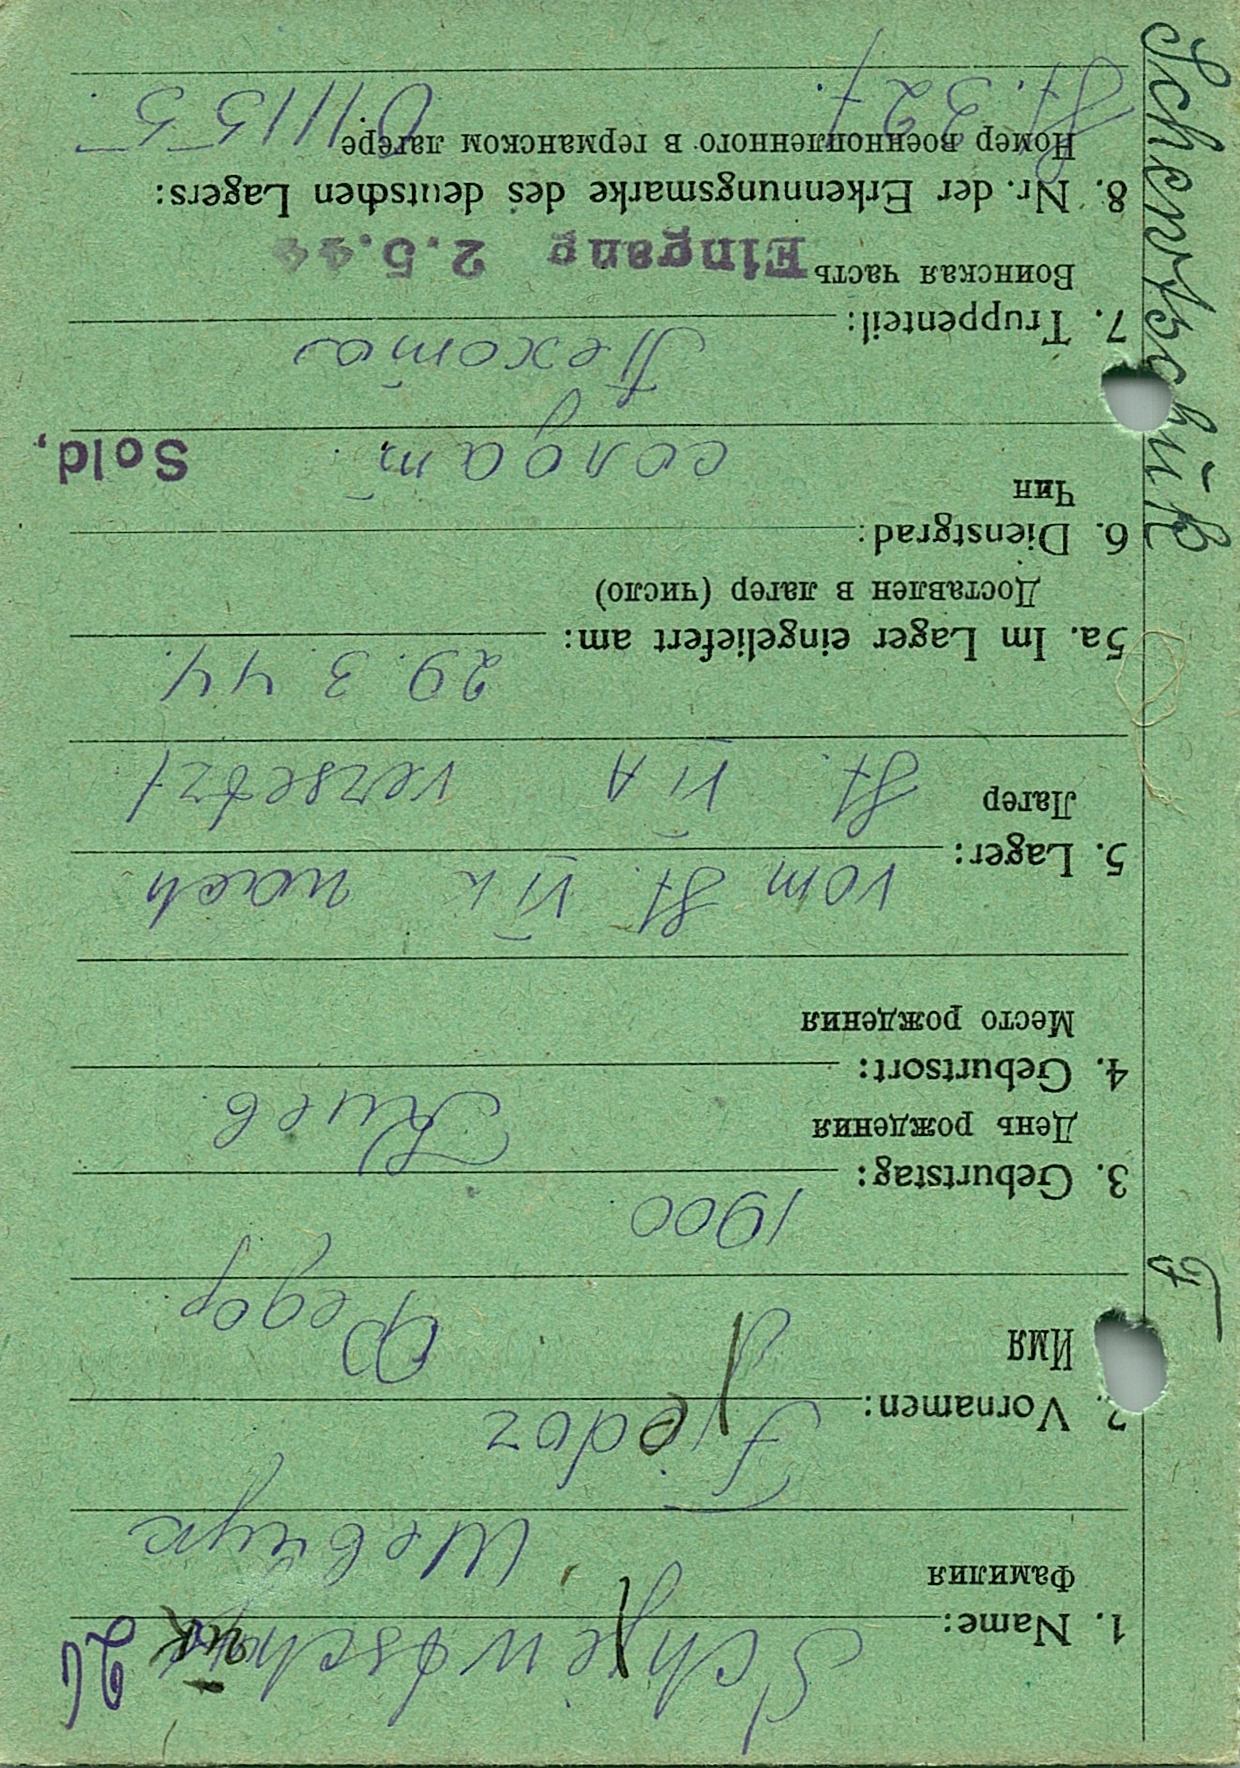 26
1. Name: Schewtschuk
Фамилия
Шевчук
2. Vornamen: Fjedor
Имя
Федор
3. Geburtstag: 1900
День рождения
4. Geburtsort: Киев
Место рождения
5. Lager: vom St. VI K nach
Лагер
St. VI A versetzt
5a. Im Lager eingeliefert am: 29.3.44.
Доставлен в лагер (число)
6. Dienstgrad:
Чин
солдат Sold.
7. Truppenteil: Пехота
Воинская часть Eingang 2.5.44
8. Nr. der Erkennungsmarke des deutschen Lagers:
Номер военнопленного в германском лагере
St. 327. 111155.
F
Schewtschuk